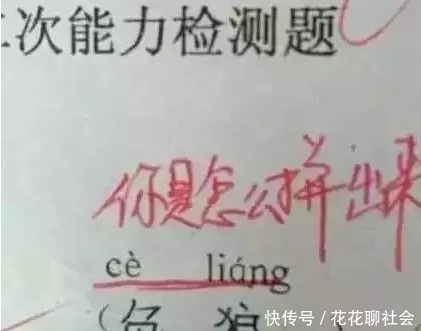 次能力检测题
你是怎么拼出来
cè liáng
(色 狼
快传号 / 花花聊社会